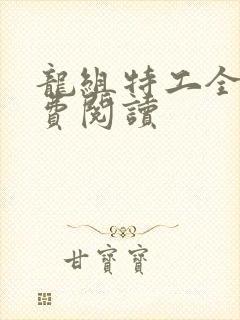 龍組特工全
費閱讀
甘寶寶